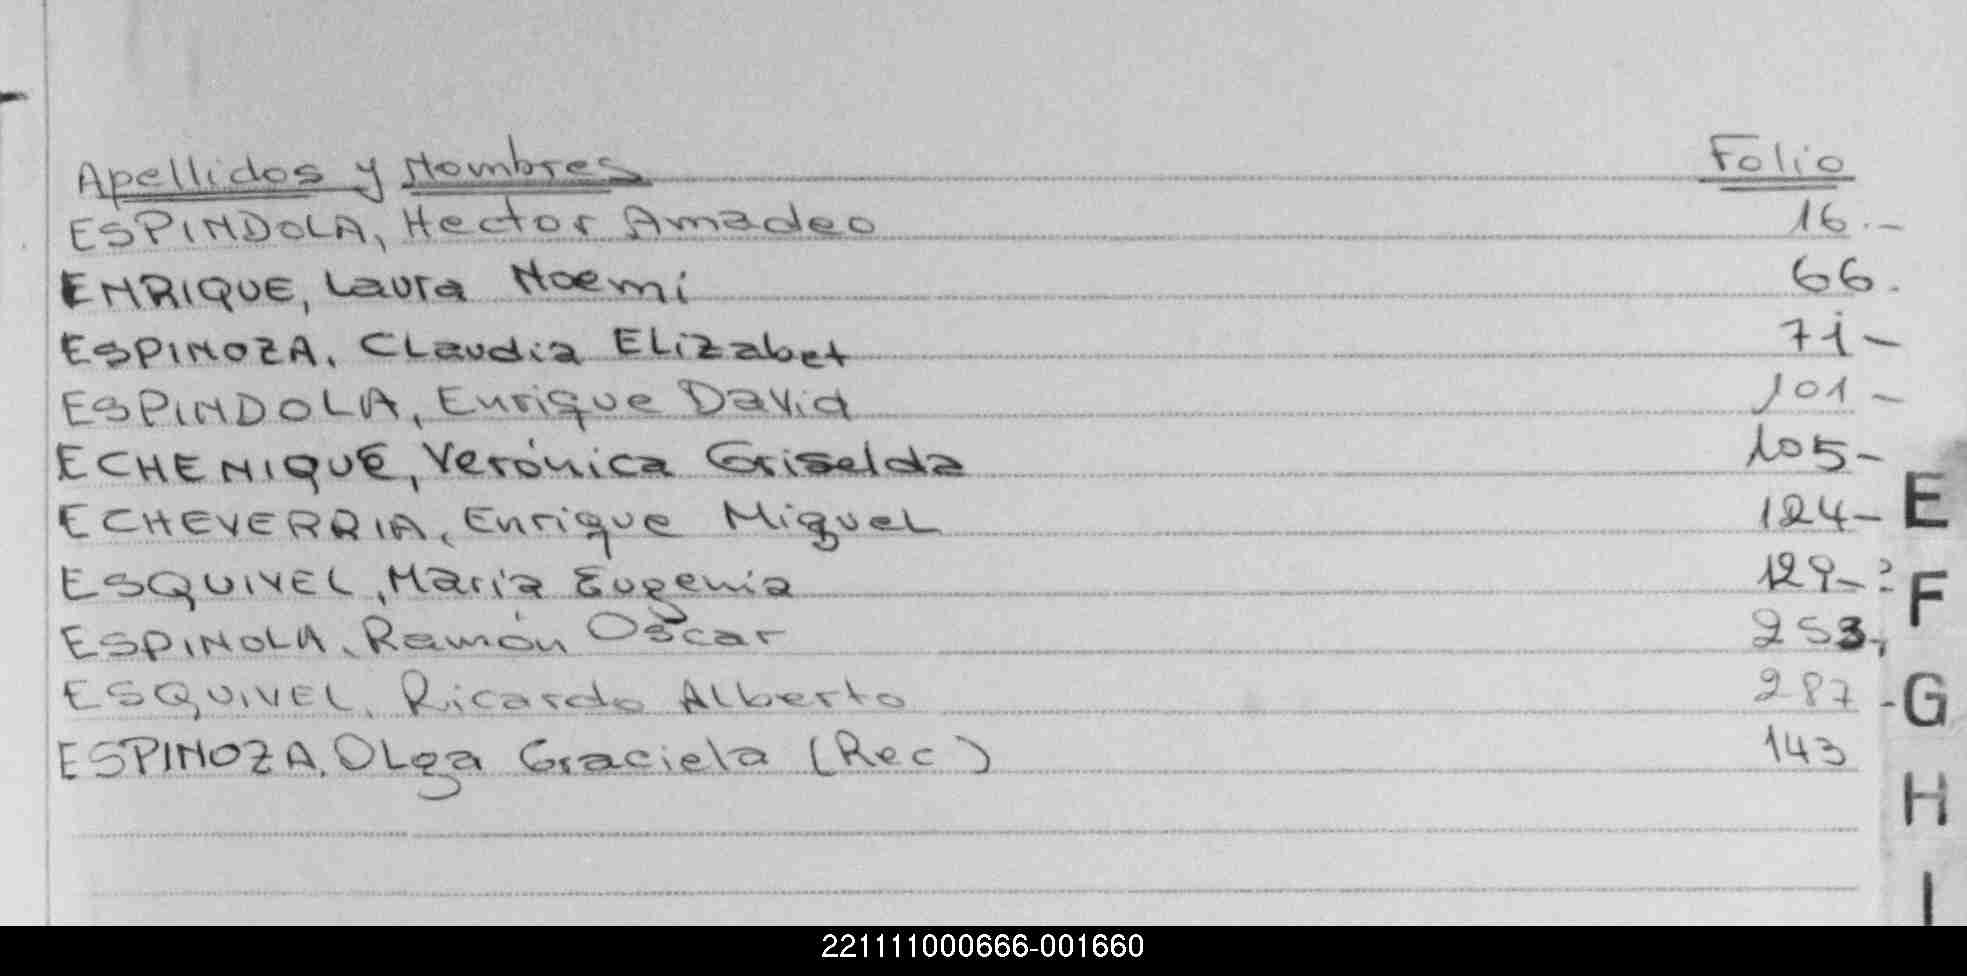 Apellidos y Nombres Folio
ESPINDOLA, Hector Amadeo 16.-
ENRIQUE, Laura Noemi 66.
ESPINOZA, Claudia Elizabet 71-
ESPINDOLA, Enrique David 101-
ECHENIQUE, Verónica Griselda 105-
ECHEVERRIA, Enrique Miguel 124-
ESQUIVEL, María Eugenia 129-
ESPINOLA, Ramón Oscar 253,
ESQUIVEL, Ricardo Alberto 287-
ESPINOZA, Olga Graciela (Rec) 143
E
F
G
H
I
221111000666-001660